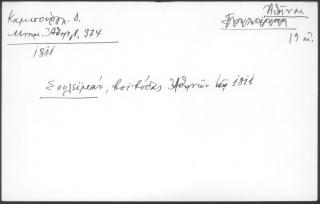 Καμπούρογλ. Δ.
Μνημ. Ἀθηνῶν, 374
1811
Ἀθῆναι
19 αἰ.
Σουλεϊμάν, βοϊβόδας Ἀθηνῶν 1811